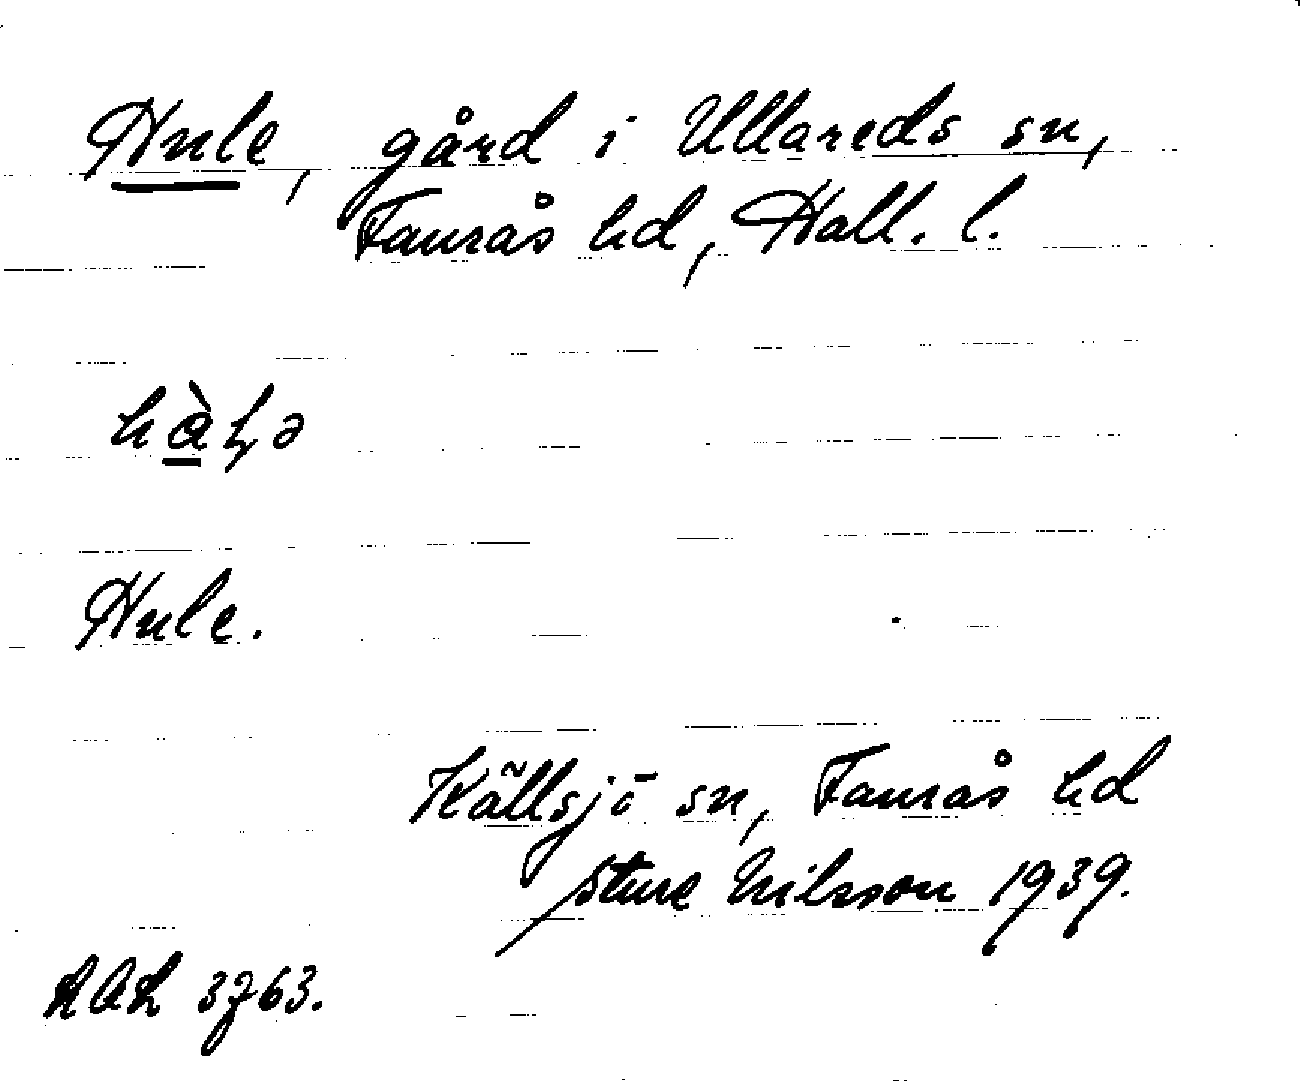 Hule, gård i Ullareds sn,
Faurås hd, Hall. l.
Hule.
Källsjö sn, Faurås hd
Sture Nilsson 1939.
3763.